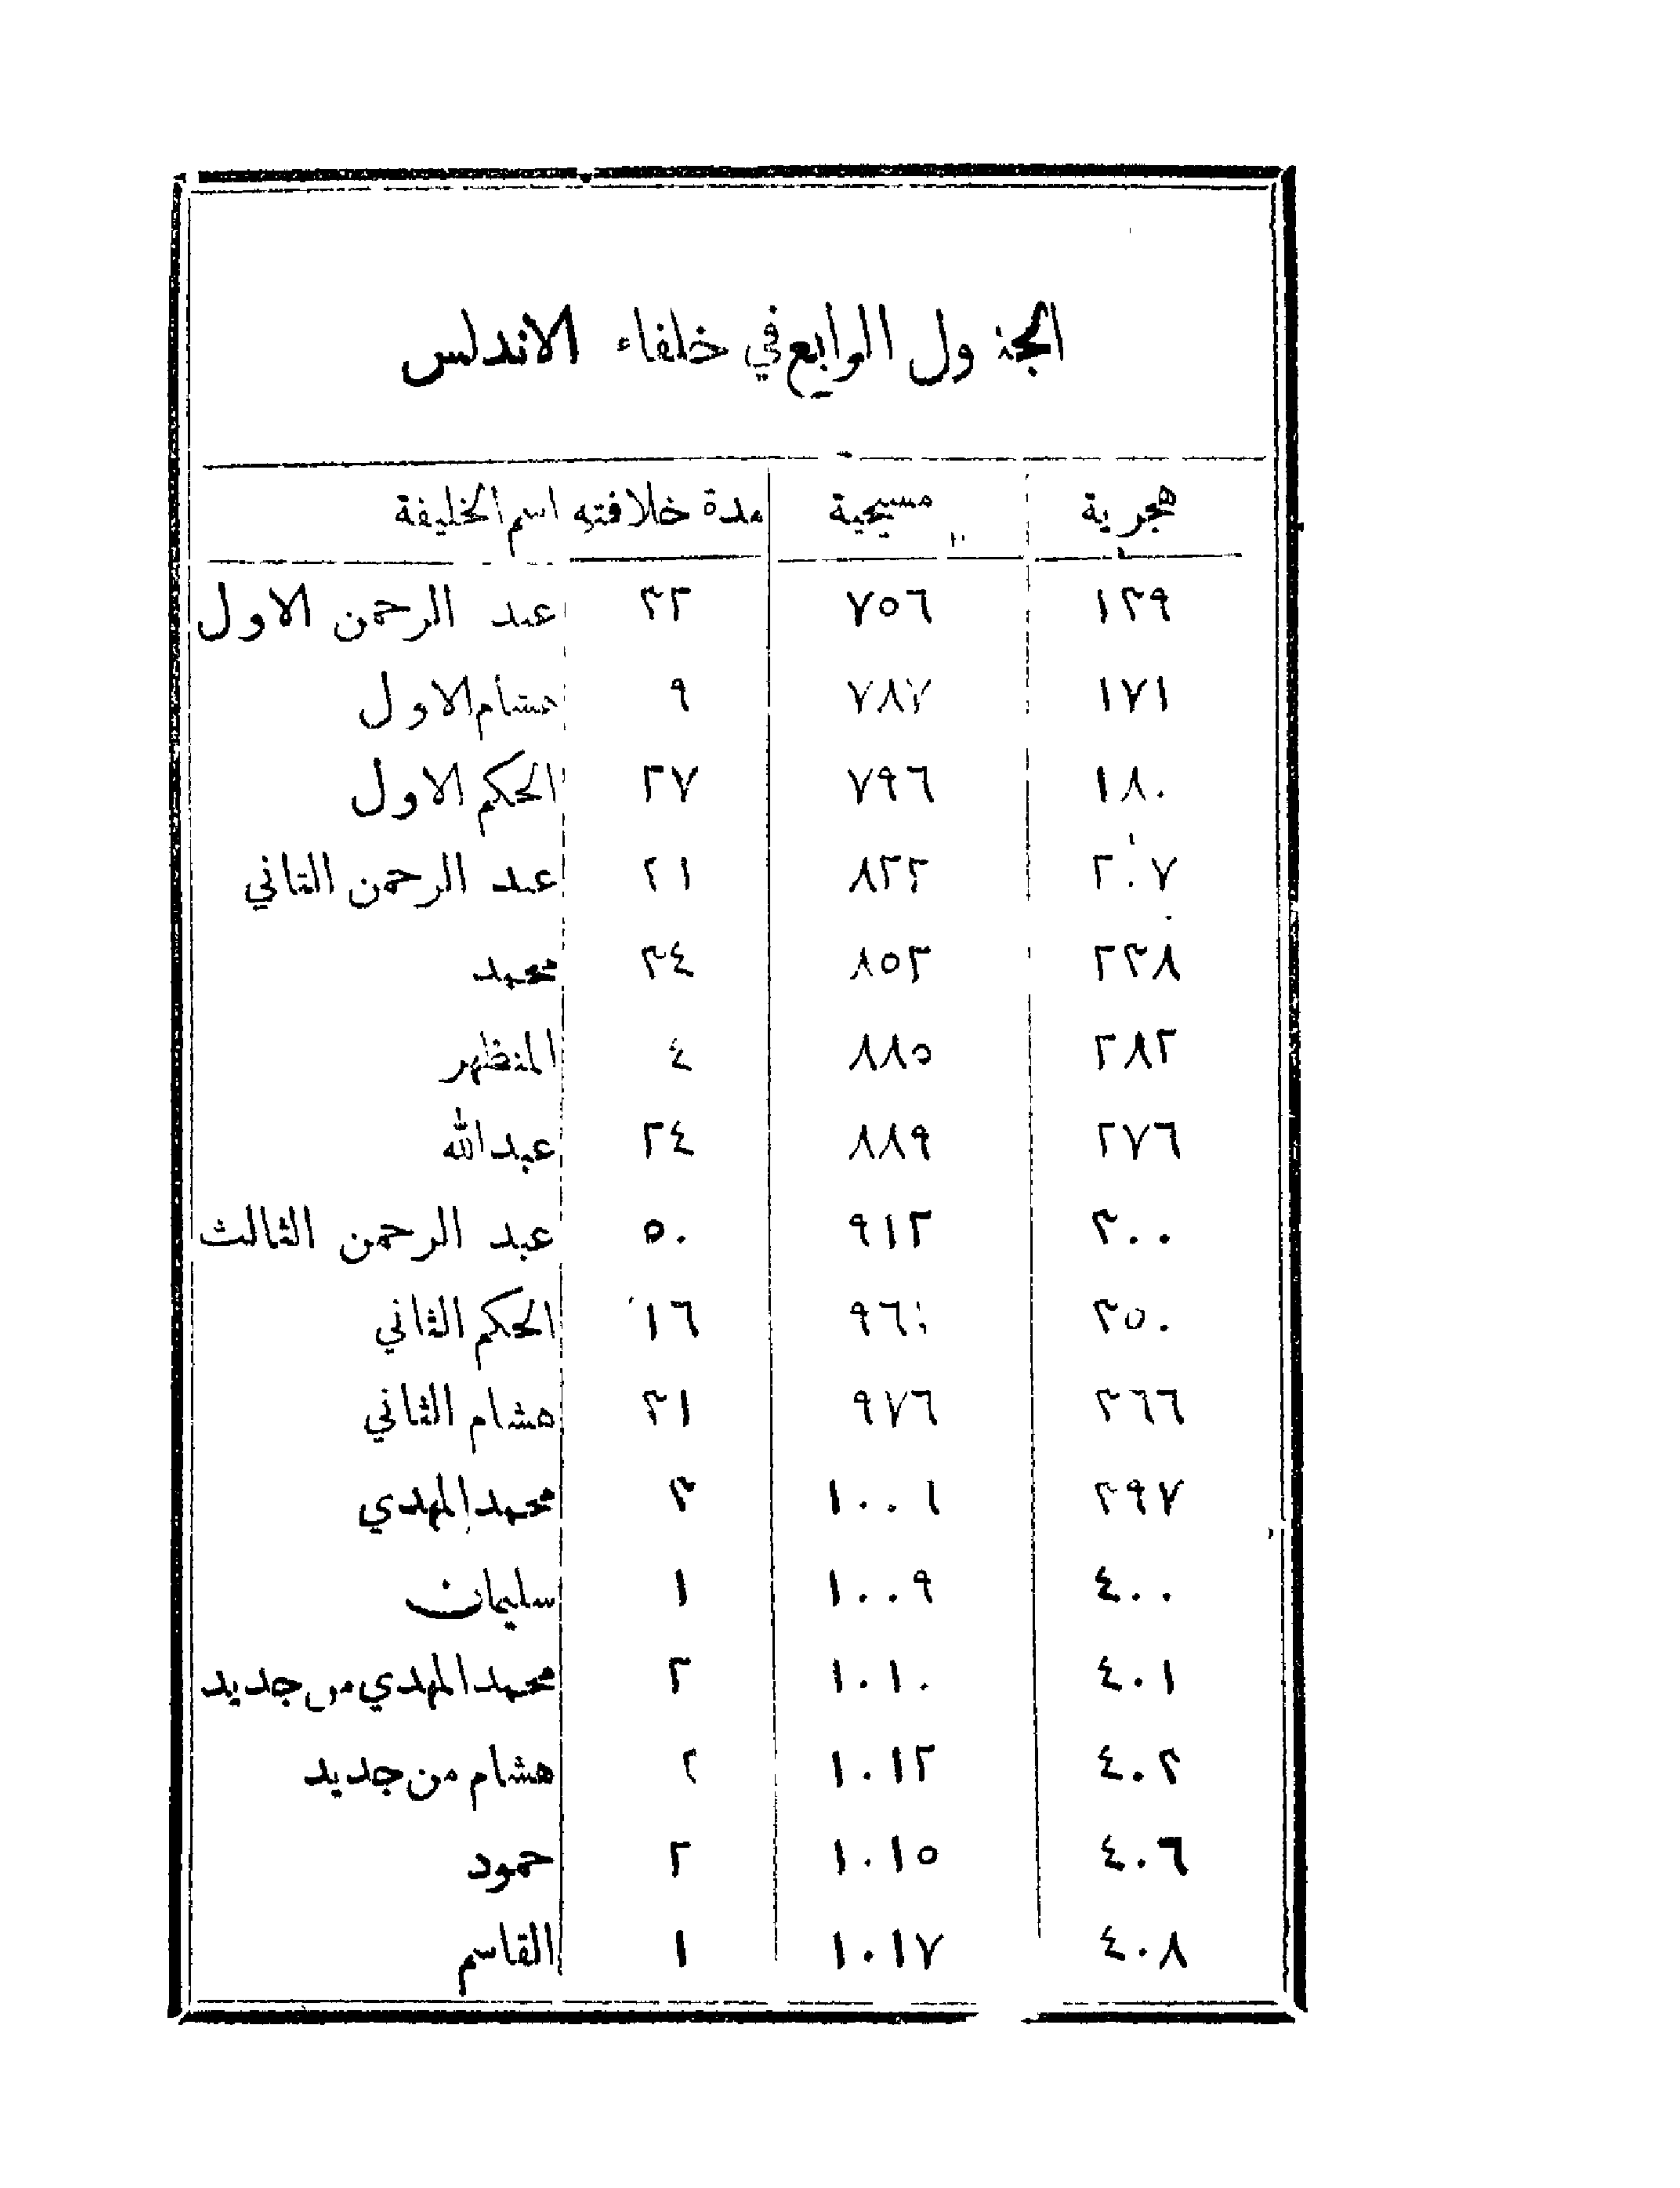 الجدول الرابع في خلفاء الاندلس
هجرية مسيحية مدة خلافته اسم الخليفة
١٣٩ ٧٥٦ ٣٢ عبد الرحمن الاول
١٧١ ٧٨٧ ٩ هشام الاول
١٨٠ ٧٩٦ ٢٧ الحكم الاول
٢٠٧ ٨٢٢ ٣١ عبد الرحمن الثاني
٢٣٨ ٨٥٢ ٣٤ محمد
٢٨٢ ٨٨٥ ٤ المنظهر
٢٧٦ ٨٨٩ ٢٤ عبد الله
٣٠٠ ٩١٢ ٥٠ عبد الرحمن الثالث
٣٥٠ ٩٦١ ١٦ الحكم الثاني
٣٦٦ ٩٧٦ ٣١ هشام الثاني
٣٩٧ ١٠٠٦ ٣ محمد المهدي
٤٠٠ ١٠٠٩ ١ سليمان
٤٠١ ١٠١٠ ٢ محمد المهدي من جديد
٤٠٣ ١٠١٢ ٣ هشام من جديد
٤٠٦ ١٠١٥ ٢ حمود
٤٠٨ ١٠١٧ ١ القاسم